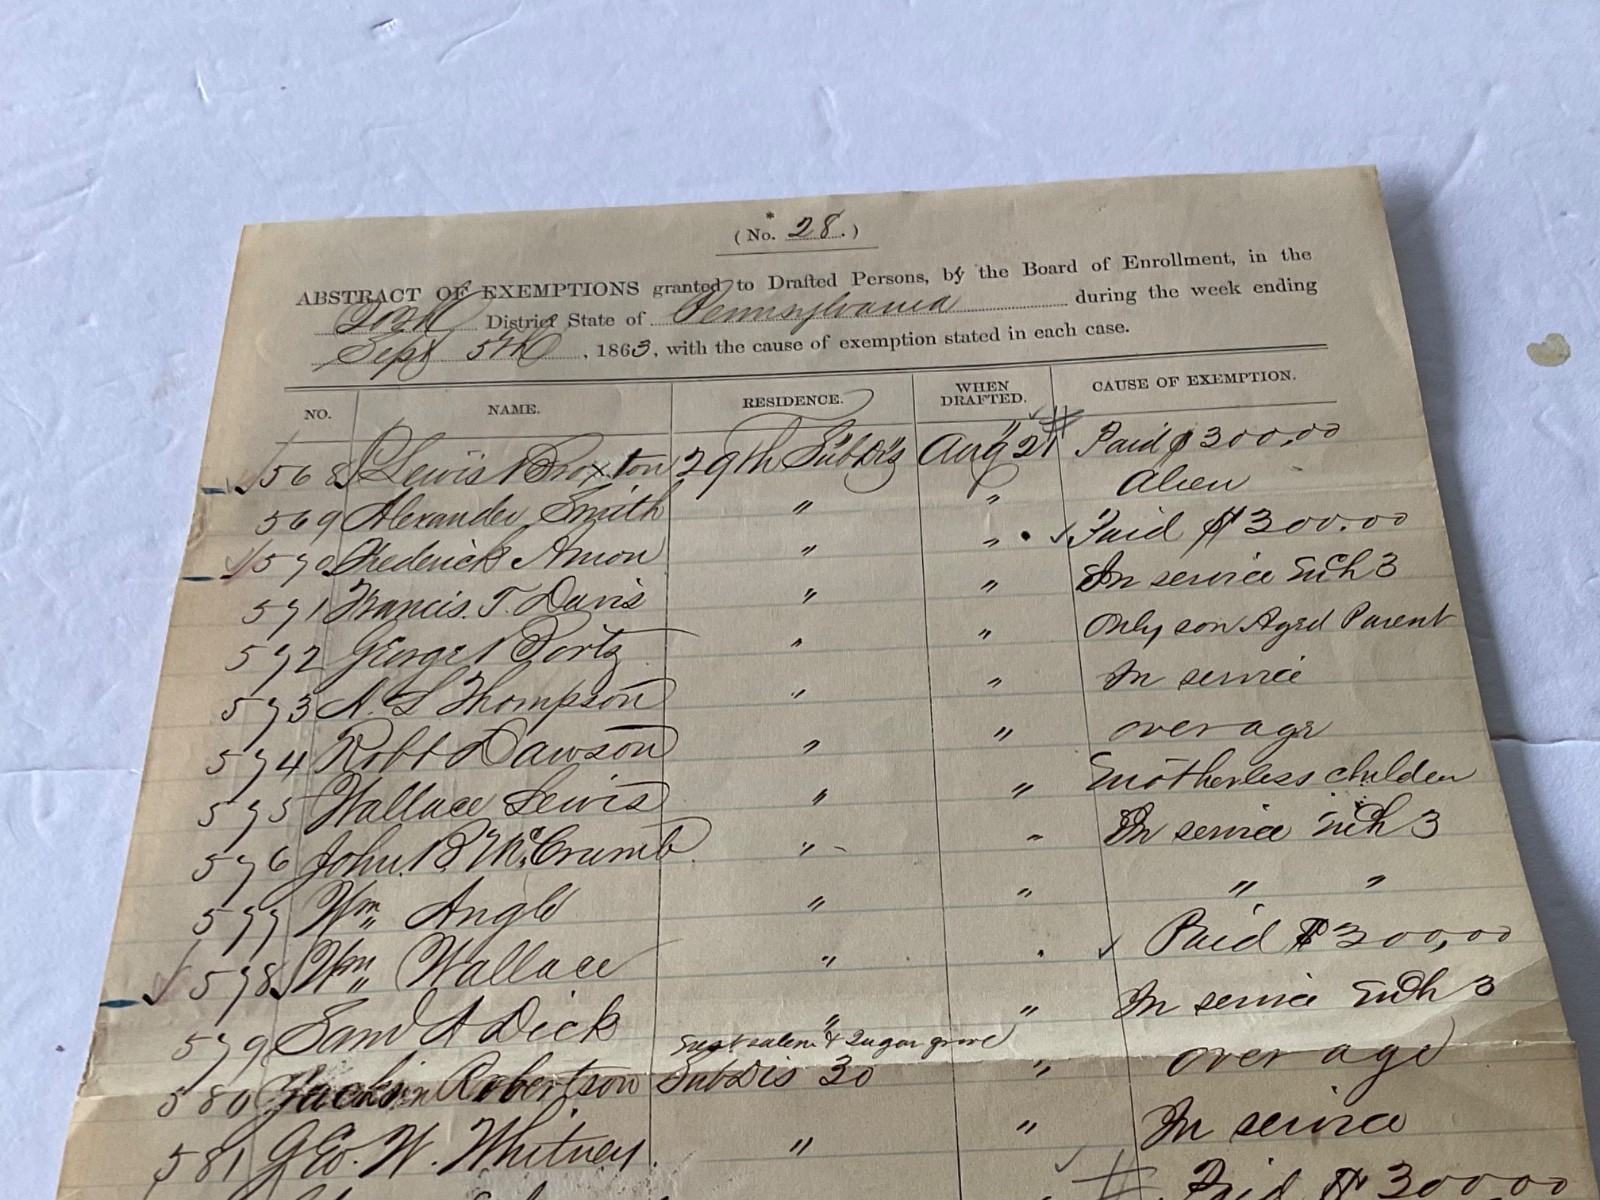 (No. 28.)
ABSTRACT OF EXEMPTIONS granted to Drafted Persons, by the Board of Enrollment, in the
20th District State of Pennsylvania during the week ending
Sept 5th, 1863, with the cause of exemption stated in each case.
NO. NAME. RESIDENCE. WHEN DRAFTED. CAUSE OF EXEMPTION.
568 Lewis Broxton 29th Sub Dis Aug 21 Paid $300.00
569 Alexander Smith " " Alien
570 Frederick Amon " " Paid $300.00
571 Francis. T. Davis " " In service Mch 3
572 George Portz " " Only son Aged Parent
573 A. S Thompson " " In service
574 Robt Dawson " " over age
575 Wallace Lewis " " Motherless children
576 John. B. McCrumb " " In service Mch 3
577 Wm Angle " " " "
578 Wm Wallace " Paid $300,00
579 Saml A Dick " " In service Mch 3
East salem & Sugar grove
580 Jackson Robertson Sub Dis 30 " over age
581 Geo. W. Whitney. " " In service
Paid $300.00